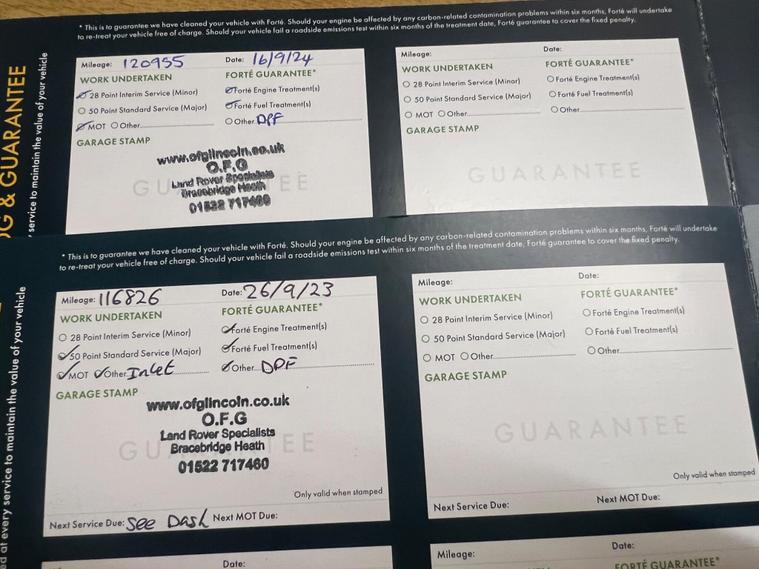 * This is to guarantee we have cleaned your vehicle with Forté. Should your engine be affected by any carbon-related contamination problems within six months, Forté will undertake
to re-treat your vehicle free of charge. Should your vehicle fail a roadside emissions test within six months of the treatment date, Forté guarantee to cover the fixed penalty.
G & GUARANTEE
service to maintain the value of your vehicle
Mileage: 120955 Date: 16/9/24
WORK UNDERTAKEN FORTÉ GUARANTEE*
28 Point Interim Service (Minor) Forté Engine Treatment(s)
50 Point Standard Service (Major) Forté Fuel Treatment(s)
MOT Other Other DPF
GARAGE STAMP
www.ofglincoln.co.uk
O.F.G
Land Rover Specialists
Bracebridge Heath
01522 717460
GUARANTEE
Mileage: Date:
WORK UNDERTAKEN FORTÉ GUARANTEE*
28 Point Interim Service (Minor) Forté Engine Treatment(s)
50 Point Standard Service (Major) Forté Fuel Treatment(s)
MOT Other Other
GARAGE STAMP
GUARANTEE
* This is to guarantee we have cleaned your vehicle with Forté. Should your engine be affected by any carbon-related contamination problems within six months, Forté will undertake
to re-treat your vehicle free of charge. Should your vehicle fail a roadside emissions test within six months of the treatment date, Forté guarantee to cover the fixed penalty.
ed at every service to maintain the value of your vehicle
Mileage: 116826 Date: 26/9/23
WORK UNDERTAKEN FORTÉ GUARANTEE*
28 Point Interim Service (Minor) Forté Engine Treatment(s)
50 Point Standard Service (Major) Forté Fuel Treatment(s)
MOT Other Inlet Other DPF
GARAGE STAMP
www.ofglincoln.co.uk
O.F.G
Land Rover Specialists
Bracebridge Heath
01522 717460
GUARANTEE
Only valid when stamped
Next Service Due: See Dash Next MOT Due:
Mileage: Date:
WORK UNDERTAKEN FORTÉ GUARANTEE*
28 Point Interim Service (Minor) Forté Engine Treatment(s)
50 Point Standard Service (Major) Forté Fuel Treatment(s)
MOT Other Other
GARAGE STAMP
GUARANTEE
Only valid when stamped
Next Service Due: Next MOT Due:
Date:
Mileage: Date:
FORTÉ GUARANTEE*